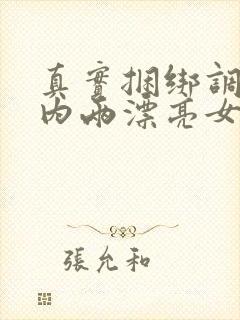 真實捆綁調
內兩漂亮女
張允和